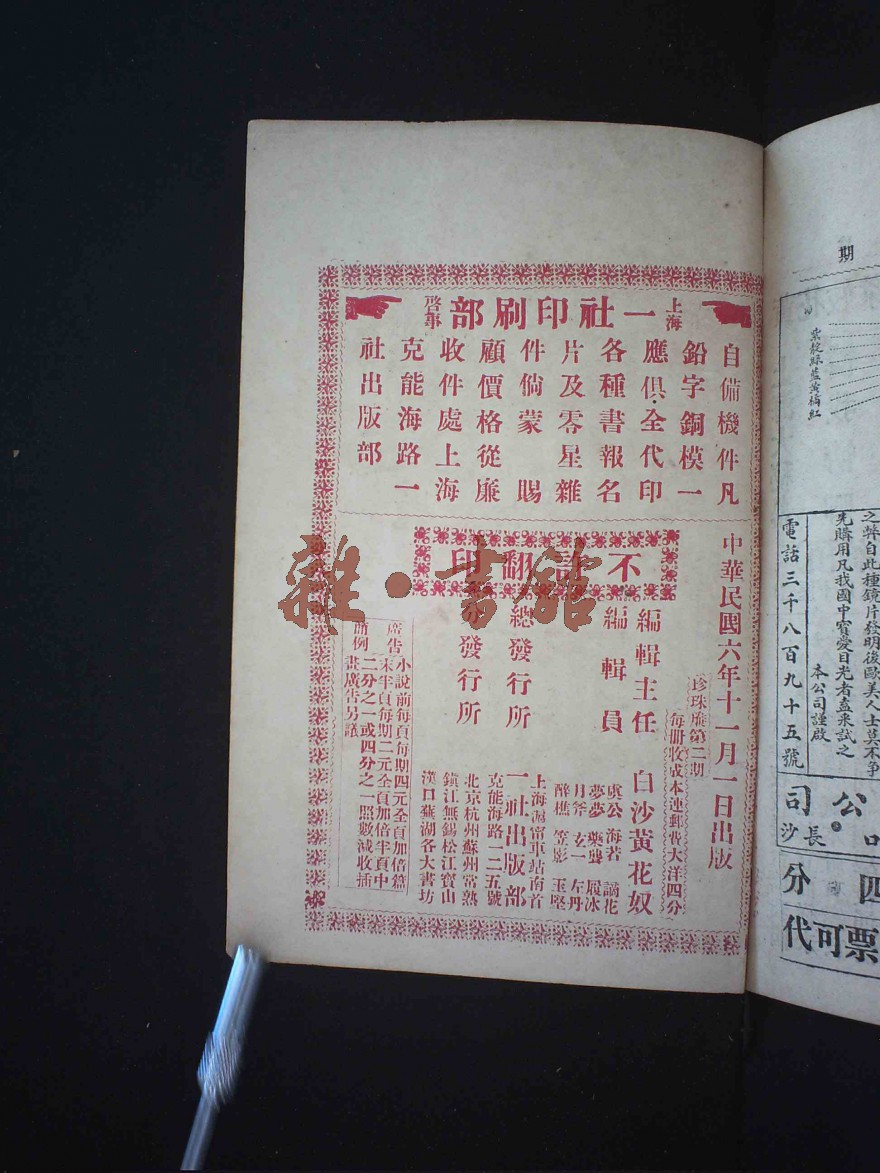 上海一社印刷部啓事
自備機件凡
鉛字銅模一
應俱全代印
各種書報名
片及零星雜
件倘蒙 賜
顧價格從廉
收件處上海
克能海路一
社出版部
中華民國六年十一月一日出版
珍珠簾第二期
每册收成本連郵費大洋四分
不許翻印
編輯主任 白沙黃花奴
編輯員
虞公 海若 謫花
夢夢 藥聾 屐冰
月斧 玄一 左丹
醉樵 笠影 玉堅
總發行所
上海滬甯車站南首
一社出版部
克能海路一二五號
分發行所
北京杭州蘇州常熟
鎮江無錫松江寶山
漢口蕪湖各大書坊
廣告簡例
小說前每頁每期四元全頁加倍篇
末半頁每期二元全頁加倍半頁中
二分之一或四分之一照數減收插
畫廣告另議
雜·書館
期
紫靛綠藍黃橘紅
之弊自此種鏡片發明後歐美人士莫不爭
先購用凡我國中寶愛目光者盍來試之
本公司謹啟
電話三千八百九十五號
公司
長沙
口
四分
票可代